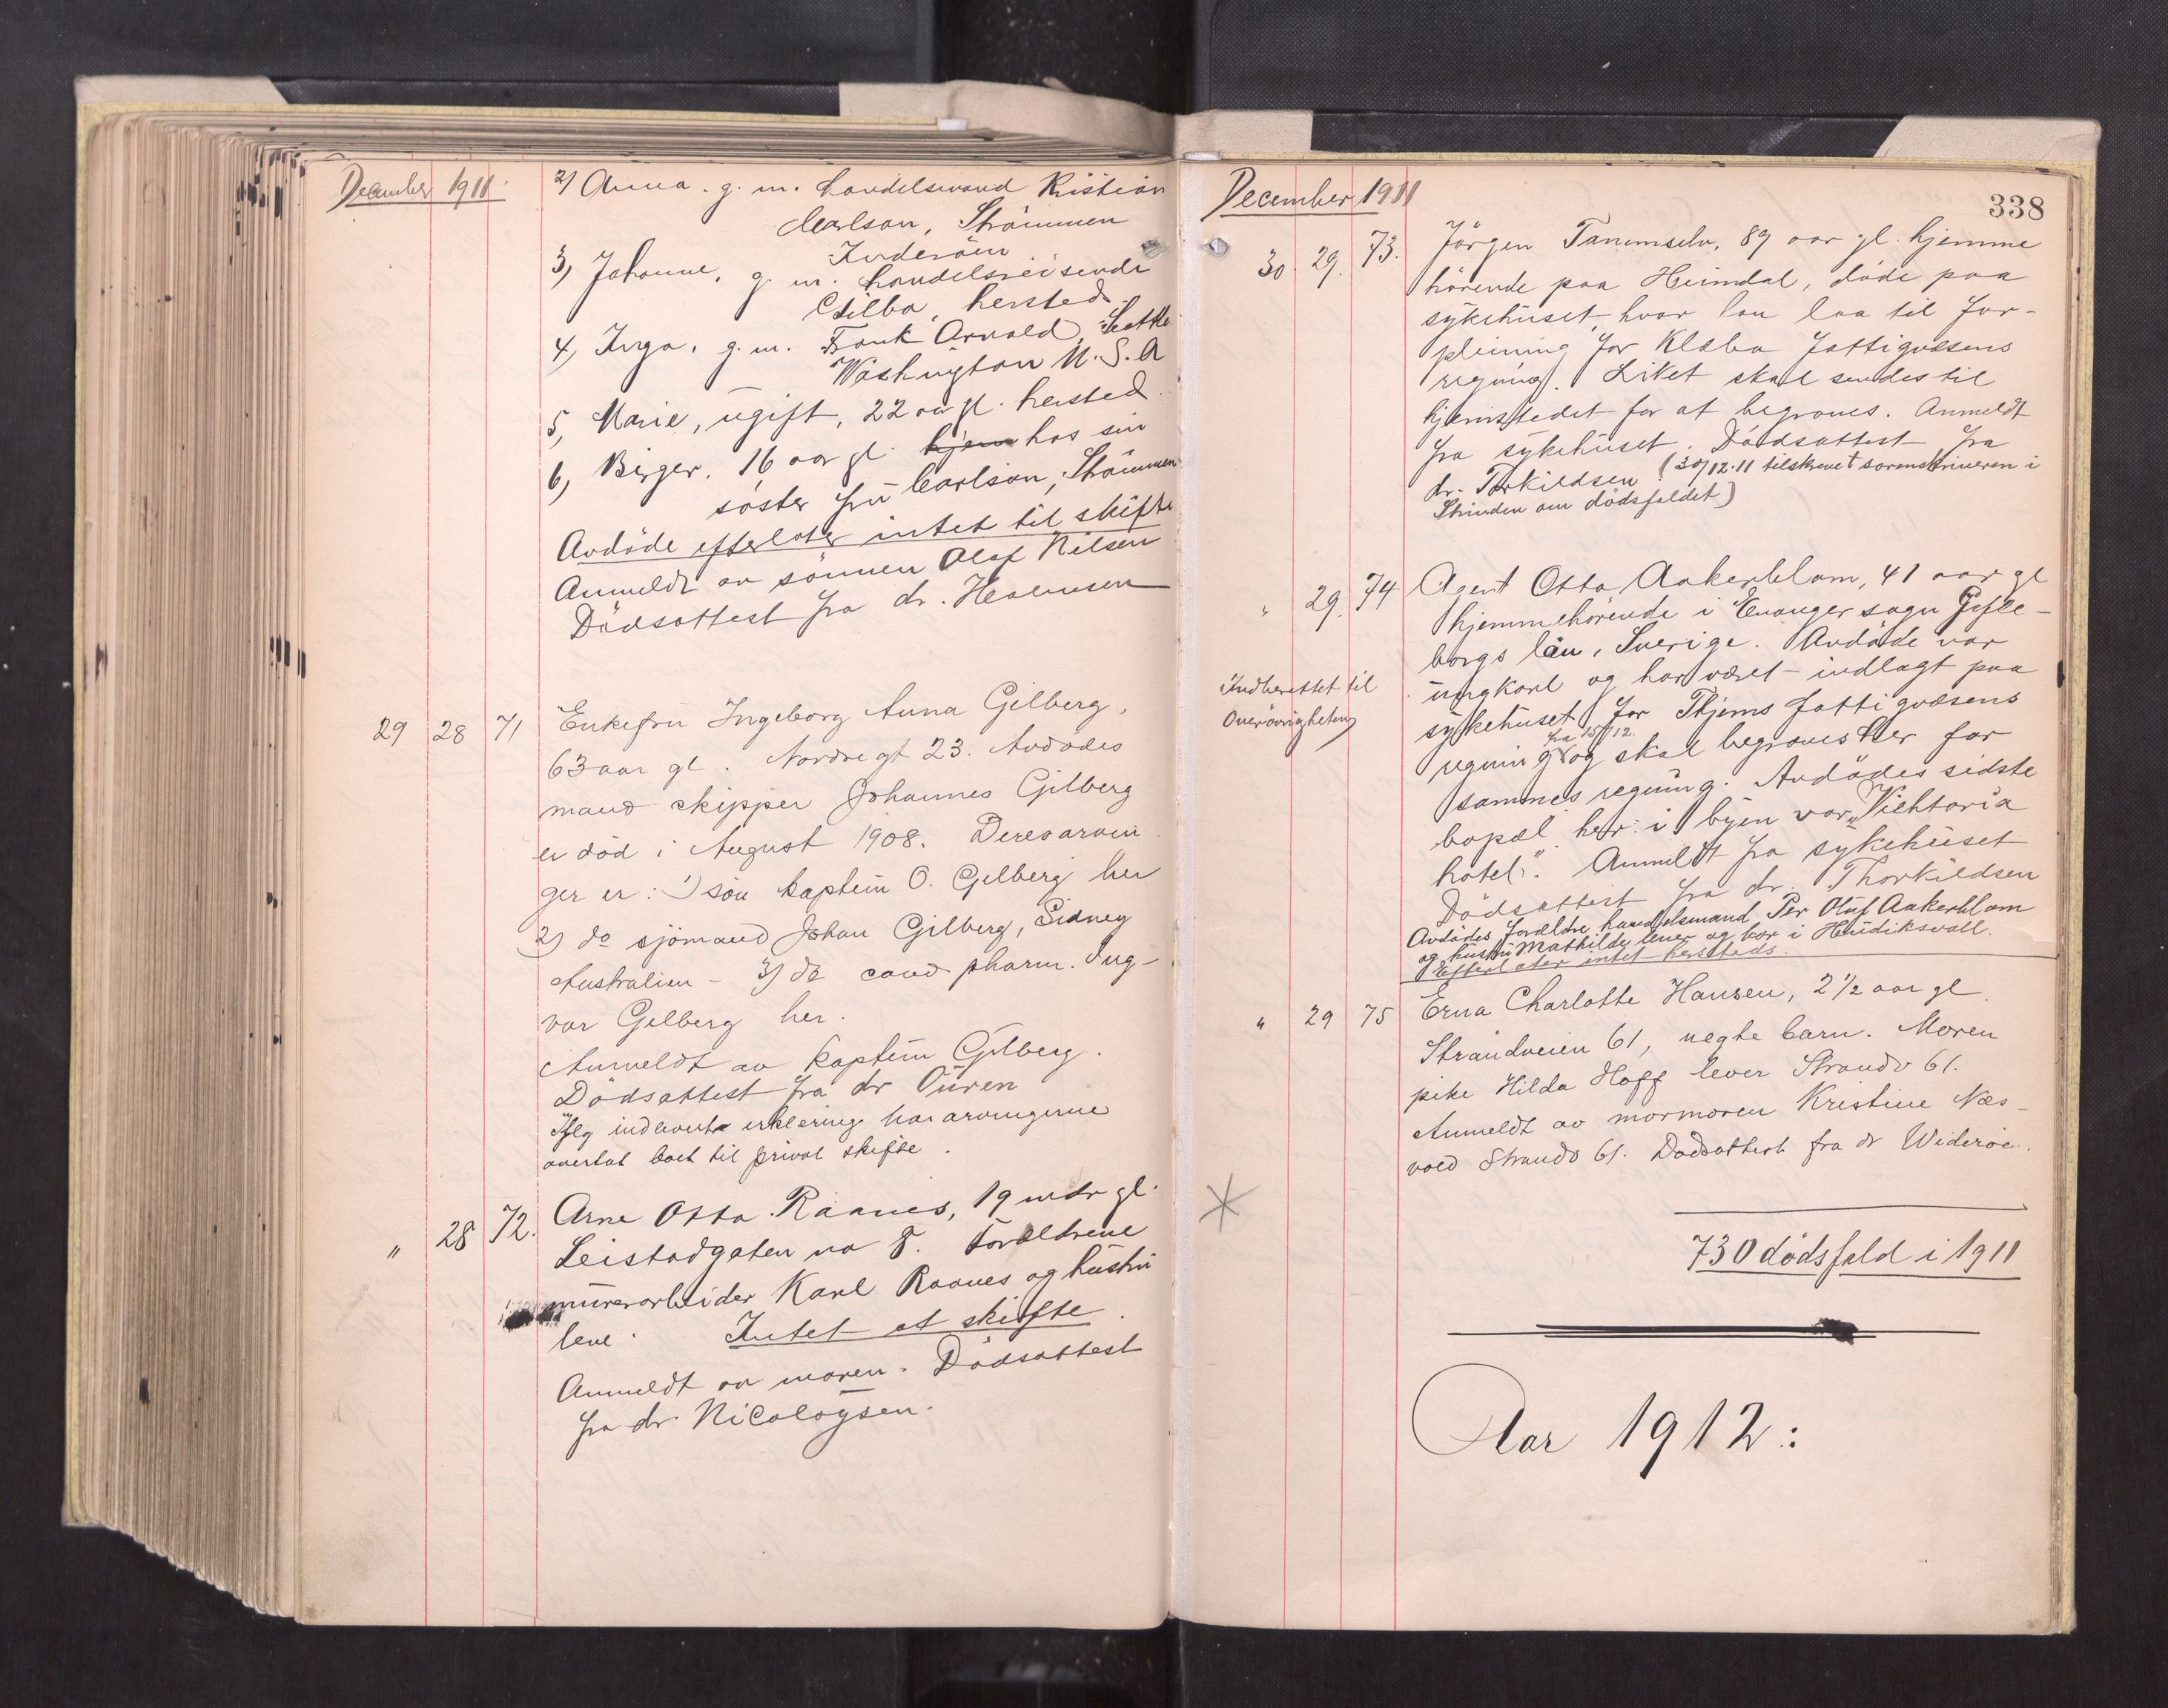 December 1911.
2) Anna. g. m. handelsmand Kristian
Carlson, Strömmen
Inderöen
3) Johanne, g. m. handelsreisende
Gilbo, hersteds.
4) Inga, g. m. Frank Arnold, Seattle
Washington U. S. A
5, Marie, ugift, 22 aar gl. hersted.
6, Birger. 16 aar gl. hjem hos sin
söster fru Carlson, Strömmen
Avdöde efterlater intet til skifte
Anmeldt av sönnen Olaf Nilsen
Dödsattest fra dr.
29 28 71 Enkefru Ingeborg Anna Gilberg,
63 aar gl. Nordregt 23. Avdödes
mand skipper Johannes Gilberg
er död i August 1908. Deres arvin
ger er: 1) sön kaptein O. Gilberg her
2) do sjömand Johan Gilberg, Sidney
Australien - 3) do cand pharm. Ing-
var Gilberg her.
Anmeldt av kaptein Gilberg.
Dödsattest fra dr Ouren
Iflg indlevert erklæring har arvingerne
overtat boet til privat skifte.
" 28 72. Arne Otto Raanes, 19 mdr gl.
Leistadgaten no 8. Forældrene
murerarbeider Karl Raanes og hustru
leve. Intet at skifte.
Anmeldt av moren. Dödsattest
fra dr. Nicolaysen.
December 1911
338
30. 29. 73. Jörgen Tanemselv, 89 aar gl. hjemme
hörende paa Heimdal, döde paa
sykehuset, hvor han laa til for-
pleining for Klæbu fattigvæsens
regning. Liket skal sendes til
hjemstedet for at begraves. Anmeldt
fra sykehuset. Dödsattest fra
dr. Torkildsen (30/12.11 tilskrevet sorenskriveren i
Strinden om dödsfaldet)
" 29. 74 Agent Otto Aakerblom, 41 aar gl
hjemmehörende i Enånger sogn Gefle-
borgs län, Sverige. Avdöde var
Indberettet til
Overövrigheten
ungkarl og har været indlagt paa
sykehuset for Thjems fattigvæsens
fra 15/12.
regning og skal begraves her for
sammes regning. Avdödes sidste
bopæl her i byen var "Vicktoria
hotel". Anmeldt fra sykehuset
Dödsattest fra dr. Thorkildsen
Avdödes forældre handelsmand Per Oluf Aakerblom
og hustru Mathilde lever og bor i Hudiksvall.
Efterlater intet hersteds.
" 29 75 Erna Charlotte Hansen, 2 1/2 aar gl.
Strandveien 61, uegte barn. Moren
pike Hilda Hoff lever Strandv 61.
Anmeldt av mormoren Kristine Næs-
vold Strandv 61. Dödsattest fra dr Wideröe.
730 dödsfald i 1911
Aar 1912: